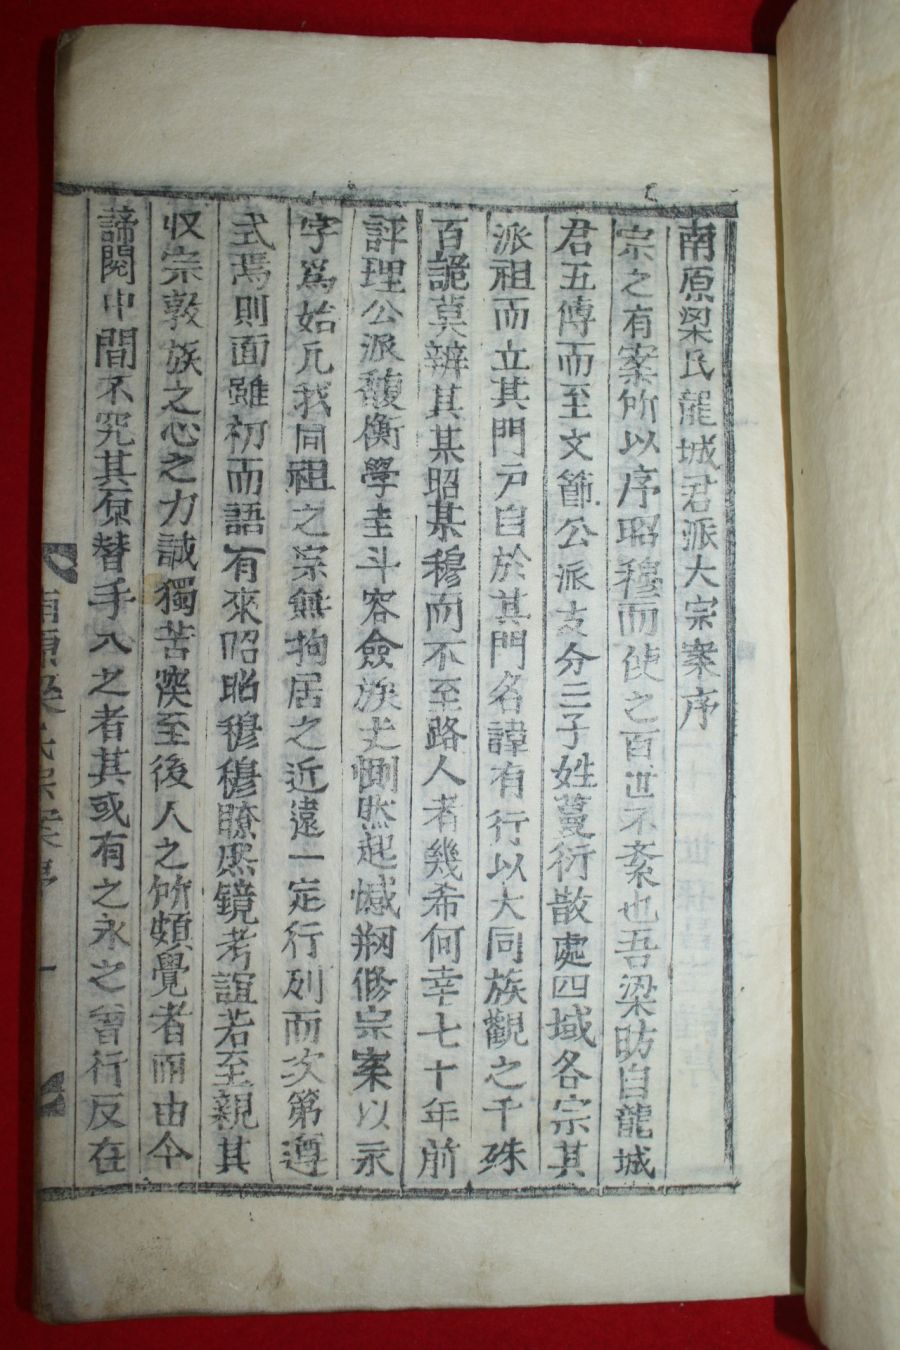 南原梁氏龍城君派大宗案序
宗之有案所以序昭穆而使之百世不紊也吾梁昉自龍城
君五傳而至文節公派支分三子姓蔓衍散處四域各宗其
派祖而立其門戶自於其門名諱有行以大同族觀之千殊
百詭莫辨其某昭某穆而不至路人者幾希何幸七十年前
評理公派馥衡學圭斗容僉族丈惻然起憾刱修宗案以永
字爲始凡我同祖之宗無拘居之近遠一定行列而次第遵
式焉則面雖初而語有來昭昭穆穆瞭然鏡考誼若至親其
収宗敦族之心之力誠獨苦深至後人之所頗覺者而由今
諦閱中間不究其原替手入之者其或有之永之曾行反在
南原梁氏宗案序 一